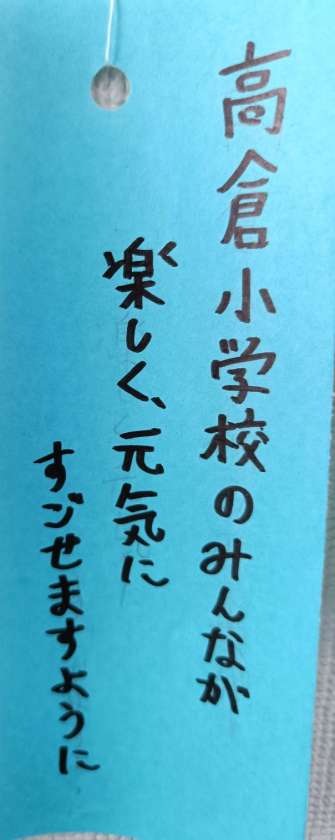 高倉小学校のみんなが
楽しく、元気に
すごせますように